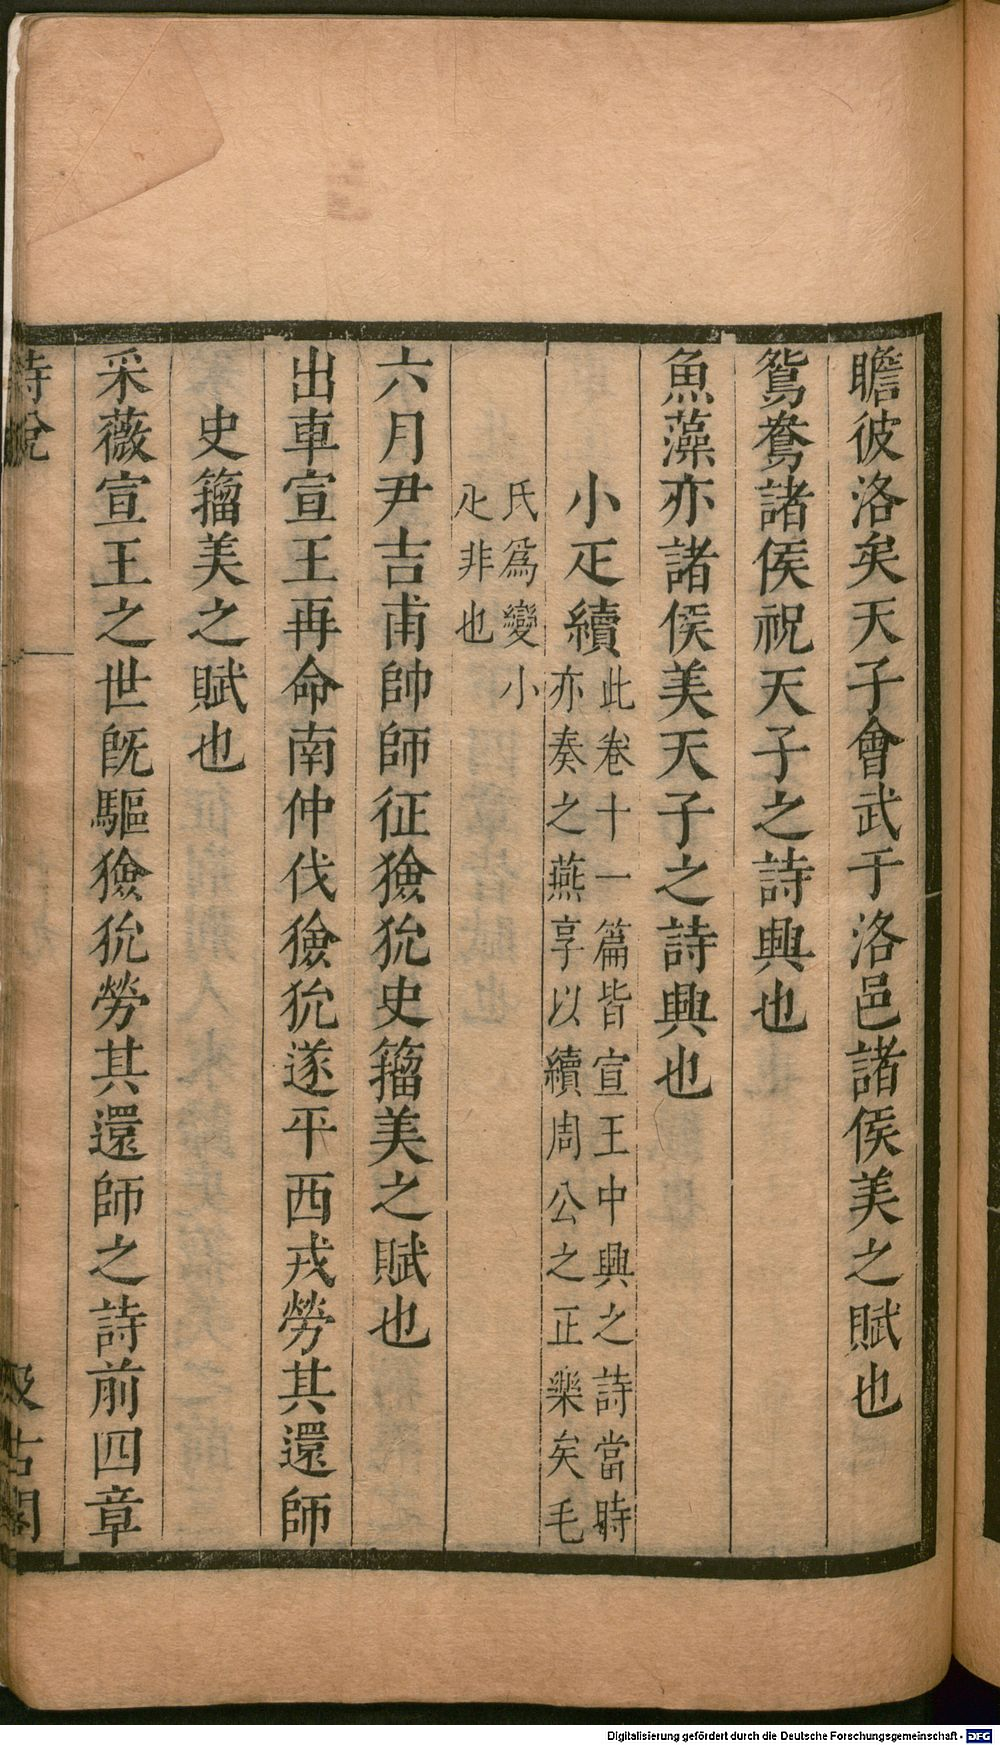 瞻彼洛矣天子會武于洛邑諸侯美之賦也
鴛鴦諸侯祝天子之詩興也
魚藻亦諸侯美天子之詩興也
小疋續此卷十一篇皆宣王中興之詩當時
亦奏之燕享以續周公之正樂矣毛
氏爲變小
疋非也
六月尹吉甫帥師征獫狁史籀美之賦也
出車宣王再命南仲伐獫狁遂平西戎勞其還師
史籀美之賦也
采薇宣王之世旣驅獫狁勞其還師之詩前四章
詩說
汲古閣
Digitalisierung gefördert durch die Deutsche Forschungsgemeinschaft - DFG